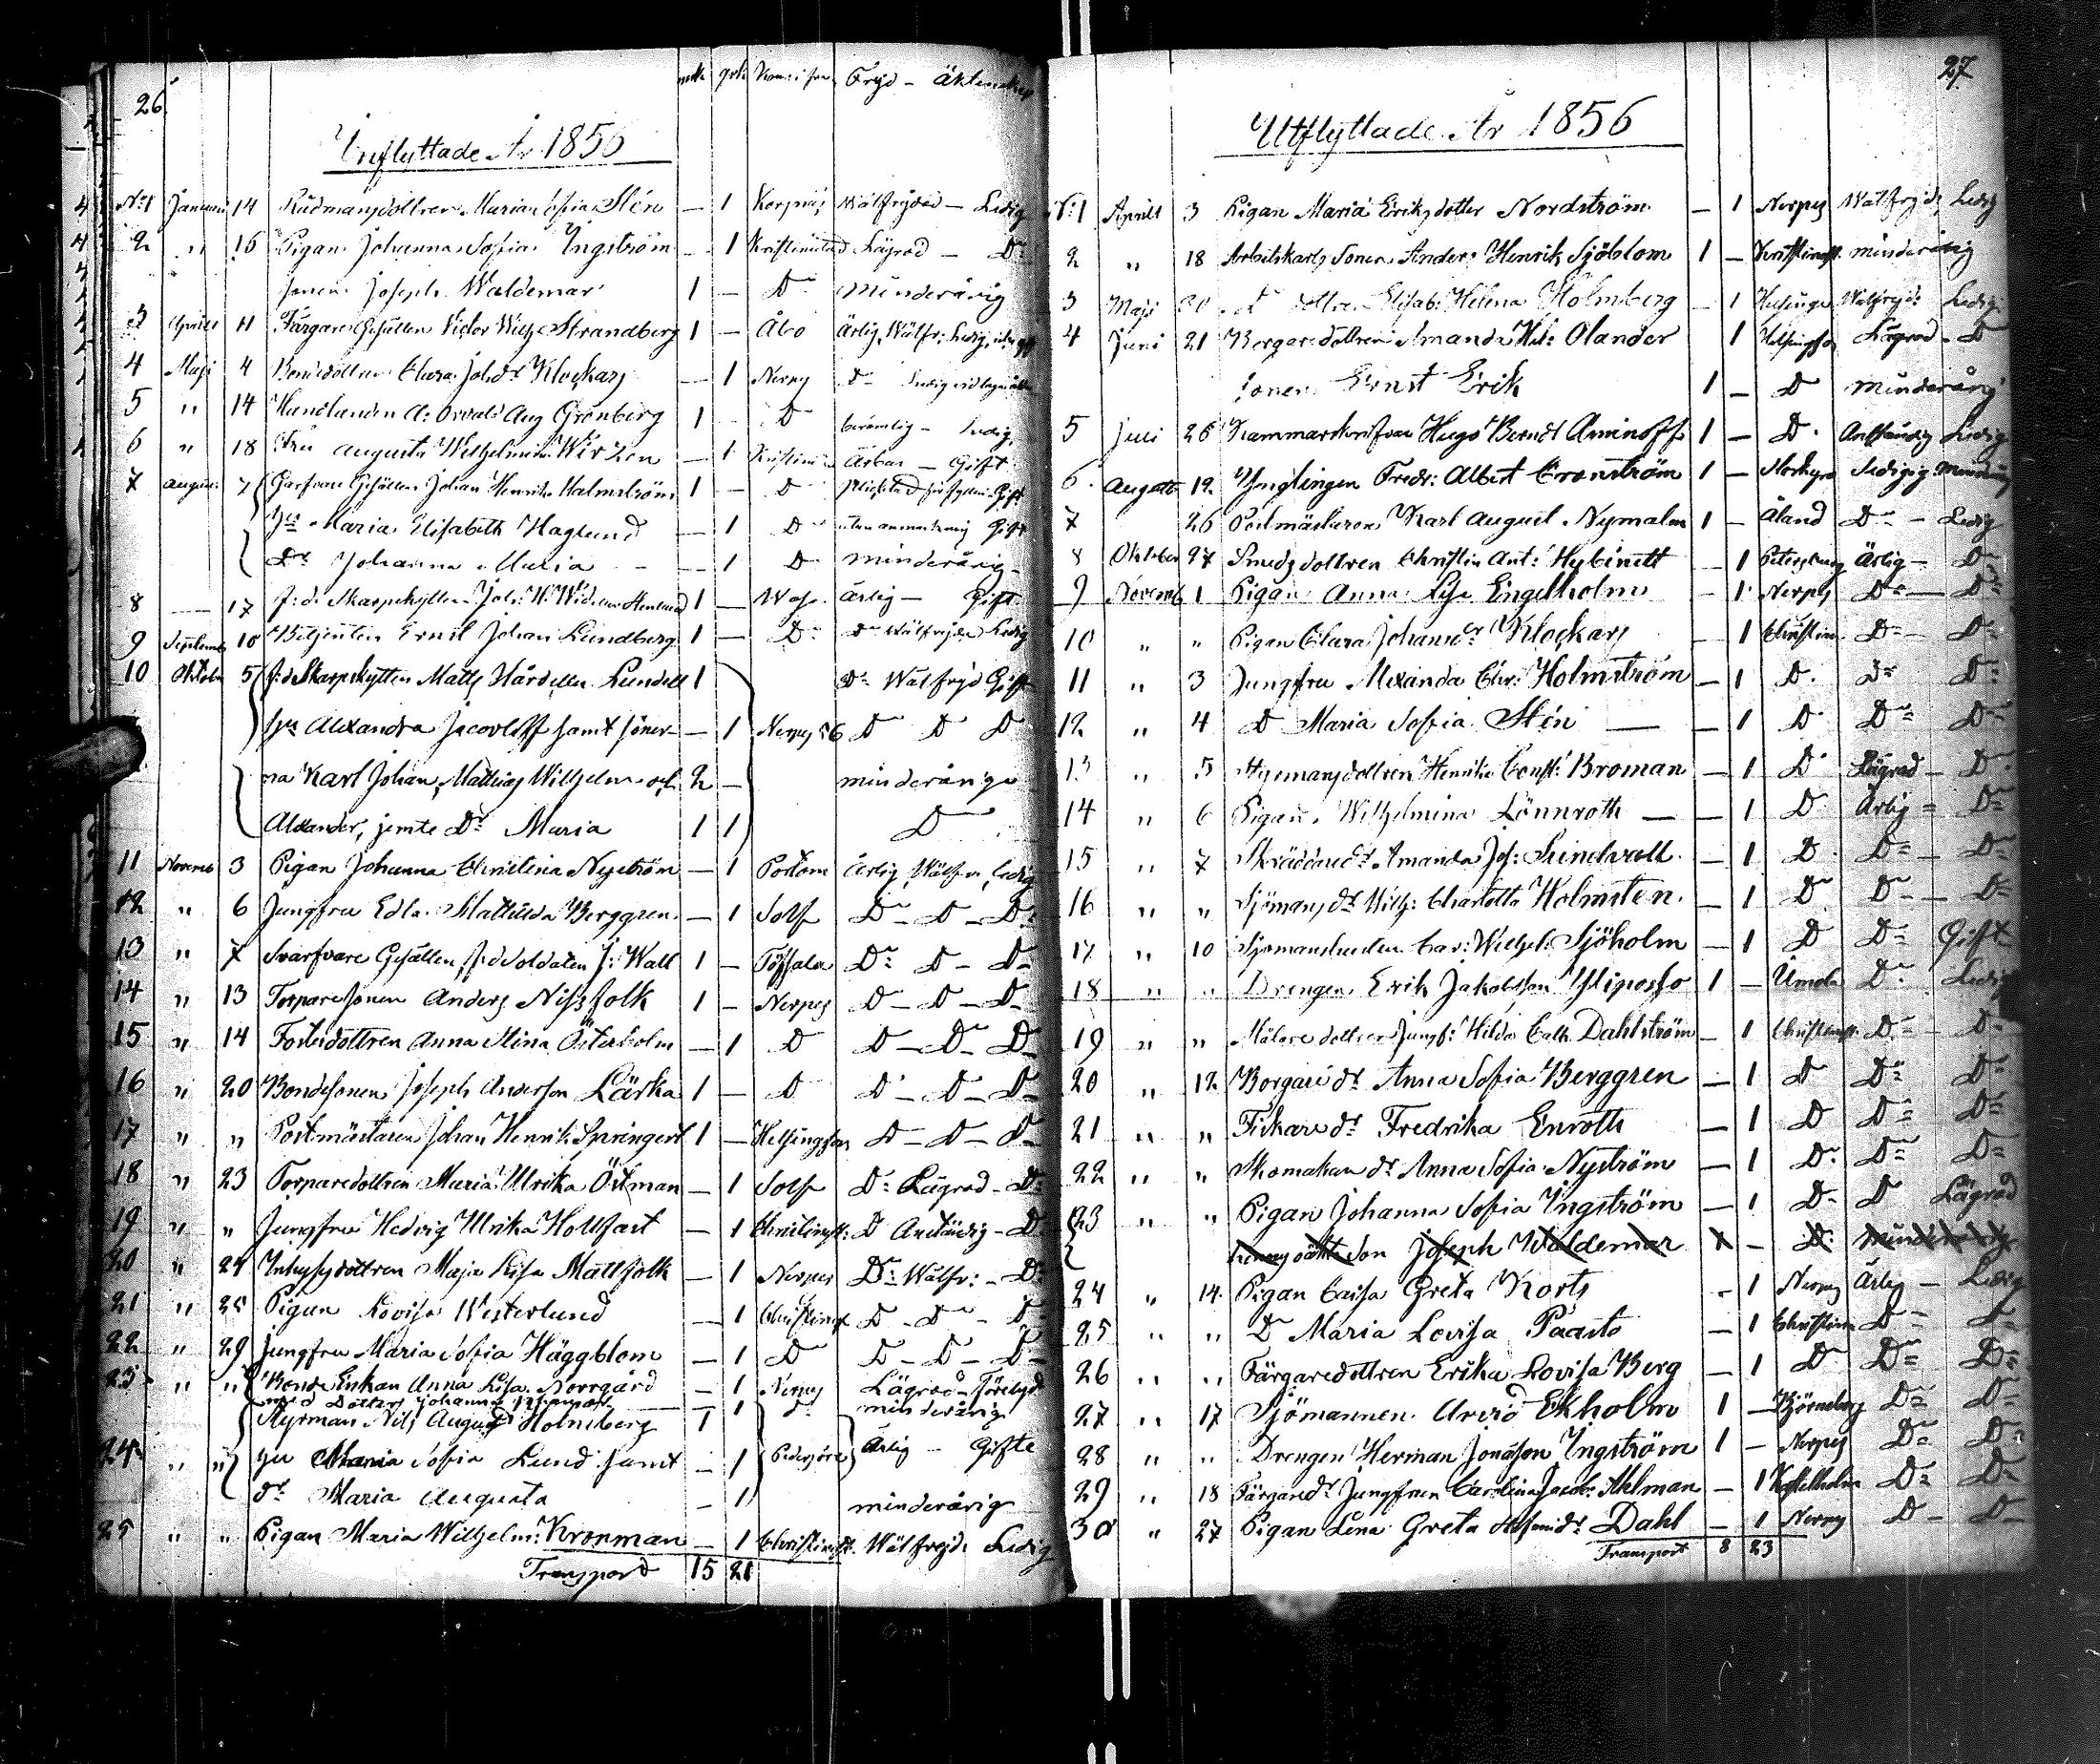 26
qvk
Inflyttade År 1856
No 1 Januari 14 Rådmansdottren Maria Sofia Stén — 1 Korsnäs Wälfrejdad — Ledig
2 " 16 Pigan Johanna Sofia Yngström — 1 Kristinestad Lägrad — Do
Sonen Joseph Waldemar 1 — Do minderårig
3 Aprill 11 Färgare Gesällen Victor Wilh: Strandberg 1 — Åbo Ärlig, Wälfr: Ledig
4 Maji 4 Bondedottren Clara Joh:dr Klockars — 1 Nerpes Do Ledig
5 " 14 Handlanden A: Osvald Aug Grönberg 1 — Do berömlig — Ledig
6 " 18 Fru Augusta Wilhelmina Wirzen — 1 Kristine Ärbar — Gift
7 August 7 Garfvare Gesällen Johan Henrik Holmström 1 — Do Gift
Hu Maria Elisabeth Haglund — 1 Do utan anmärkning Gift
Dr Johanna Maria — 1 Do minderårig
8 — 17 f: d: Skarpskytten Joh: 1 — Was. ärlig — Gift
9 Septemb 10 Betjenten Ernst Johan Lundberg 1 — Do Do Wälfrejdad Ledig
10 Oktob 5 f: d Skarpskytten Matts Lundell 1 Do Wälfrejd Gift
Hu Alexandra Jacovleff samt söner — 1 Nerpes 56 Do Do Do
na Karl Johan, Mathias Wilhelm och 2 — minderåriga
Alexander, jemte Dr Maria 1 1 Do
11 Novemb 3 Pigan Johanna Christina Nyström — 1 Portom ärlig, Wälfr, Ledig
12 " 6 Jungfru Edla Mathilda Berggren — 1 Solf Do — Do — Do
13 " 7 Svarfvare Gesällen, f: d Soldaten J: Wall 1 — Töfsala Do Do — Do
14 " 13 Torparesonen Anders Nissfolk 1 — Nerpes Do — Do — Do
15 " 14 Fosterdottren Anna Stina Österholm — 1 Do Do — Do — Do
16 " 20 Bondesonen Joseph Anderson Lärka 1 — Do Do — Do — Do
17 " " Postmästaren Johan Henrik Springert 1 — Helsingfors Do — Do — Do
18 " 23 Torparedottren Maria Ulrika Östman — 1 Solf Do Lägrad — Do
19 " " Jungfru Hedvig Ulrika Holtfast — 1 Christinest: Do Anständig — Do
20 " 24 Inhysesdottren Maja Lisa Mattfolk — 1 Nerpes Do Wälfr: — Do
21 " 25 Pigan Lovisa Westerlund — 1 Christinest Do — Do — Do
22 " 29 Jungfru Maria Sofia Häggblom — 1 Do Do — Do — Do
23 " " Bonde Enkan Anna Lisa Norrgård — 1 Nerpes Lägrad
med Dotter Johanna — 1 Do minderårig
24 " " Styrman Nils August Holmberg 1
Hu Maria Sofia Lund samt — 1 Pedersöre Ärlig — Gifte
dr Maria Augusta — 1 minderårig
25 " " Pigan Maria Wilhelm: Kronman — 1 Christinest. Wälfrejd: Ledig
Transport 15 21
27
Utflyttade År 1856
No 1 Aprill 3 Pigan Maria Eriksdotter Nordström — 1 Nerpes Wälfrejd: Ledig
2 " 18 Arbetskarls Sonen Anders Henrik Sjöblom 1 — Kristinest. minderårig
3 Maji 20 Do dottren Elisab: Helena Holmberg — 1 Wälfrejd: Ledig
4 Juni 21 Borgaredottren Amanda Hel: Olander 1 Helsingfors Lägrad — Do
Sonen Ernst Erik 1 — Do minderårig
5 Juli 26 Hugo Berndt Aminoff 1 — Do Anständig Ledig
6 Augusti 12 Ynglingen Fredr: Albert Cronström 1 — Storkyro
7 26 Postmästaren Karl August Nymalm 1 — Åland Do — Ledig
8 Oktober 27 Smedsdottren Christin Ant: Hybinett — 1 Petersburg Ärlig — Do
9 Novemb 1 Pigan Anna Lisa Engelholm — 1 Nerpes Do — Do
10 " " Pigan Clara Johansdr Klockars — 1 Christine Do — Do
11 " 3 Jungfru Alexandra Chr: Holmström — 1 Do Do Do
12 " 4 Do Maria Sofia Stén — — 1 Do Do Do
13 " 5 Styrmansdottren Henrika Const: Broman — 1 Do Lägrad — Do
14 " 6 Pigan Wilhelmina Lönnroth — — 1 Do Ärlig = Do
15 " 7 Skräddaredr Amanda Jos: Lindvall — 1 Do Do — Do
16 " " Sjömansdr Wilh: Charlotta Holmsten — 1 Do Do — Do
17 " 10 Car: Wilhel: Sjöholm — 1 Do Do Gift
18 " " Drengen Erik Jakobsson 1 — Umola Do Ledig
19 " " Målaredottren Jungf: Hilda Cath Dahlström — 1 Christinest: Do — Do
20 " 12 Borgare dr Anna Sofia Berggren — 1 Do Do Do
21 " " Fiskare dr Fredrika Enroth — 1 Do Do Do
22 " " Skomakare dr Anna Sofia Nyström — 1 Do Do Do
23 " " Pigan Johanna Sofia Yngström — 1 Do Do Lägrad
hennes oäkta Son Joseph Waldemar 1 — Do minderårig
24 " 14 Pigan Caisa Greta Korts — 1 Nerpes Ärlig — Ledig
25 " " Do Maria Lovisa Paasto — 1 Christine Do Do
26 " " Färgaredottren Erika Lovisa Berg — 1 Do Do Do
27 " 17 Sjömannen Arvid Ekholm 1 — Björneborg Do Do
28 " " Drengen Herman Jonasson Yngström 1 — Nerpes Do Do
29 " 18 Färgaredr Jungfrun Carolina Jacob: Ahlman — 1 Do Do
30 " 27 Pigan Lena Greta Dahl — 1 Nerpes Do — Do
Transport 8 23